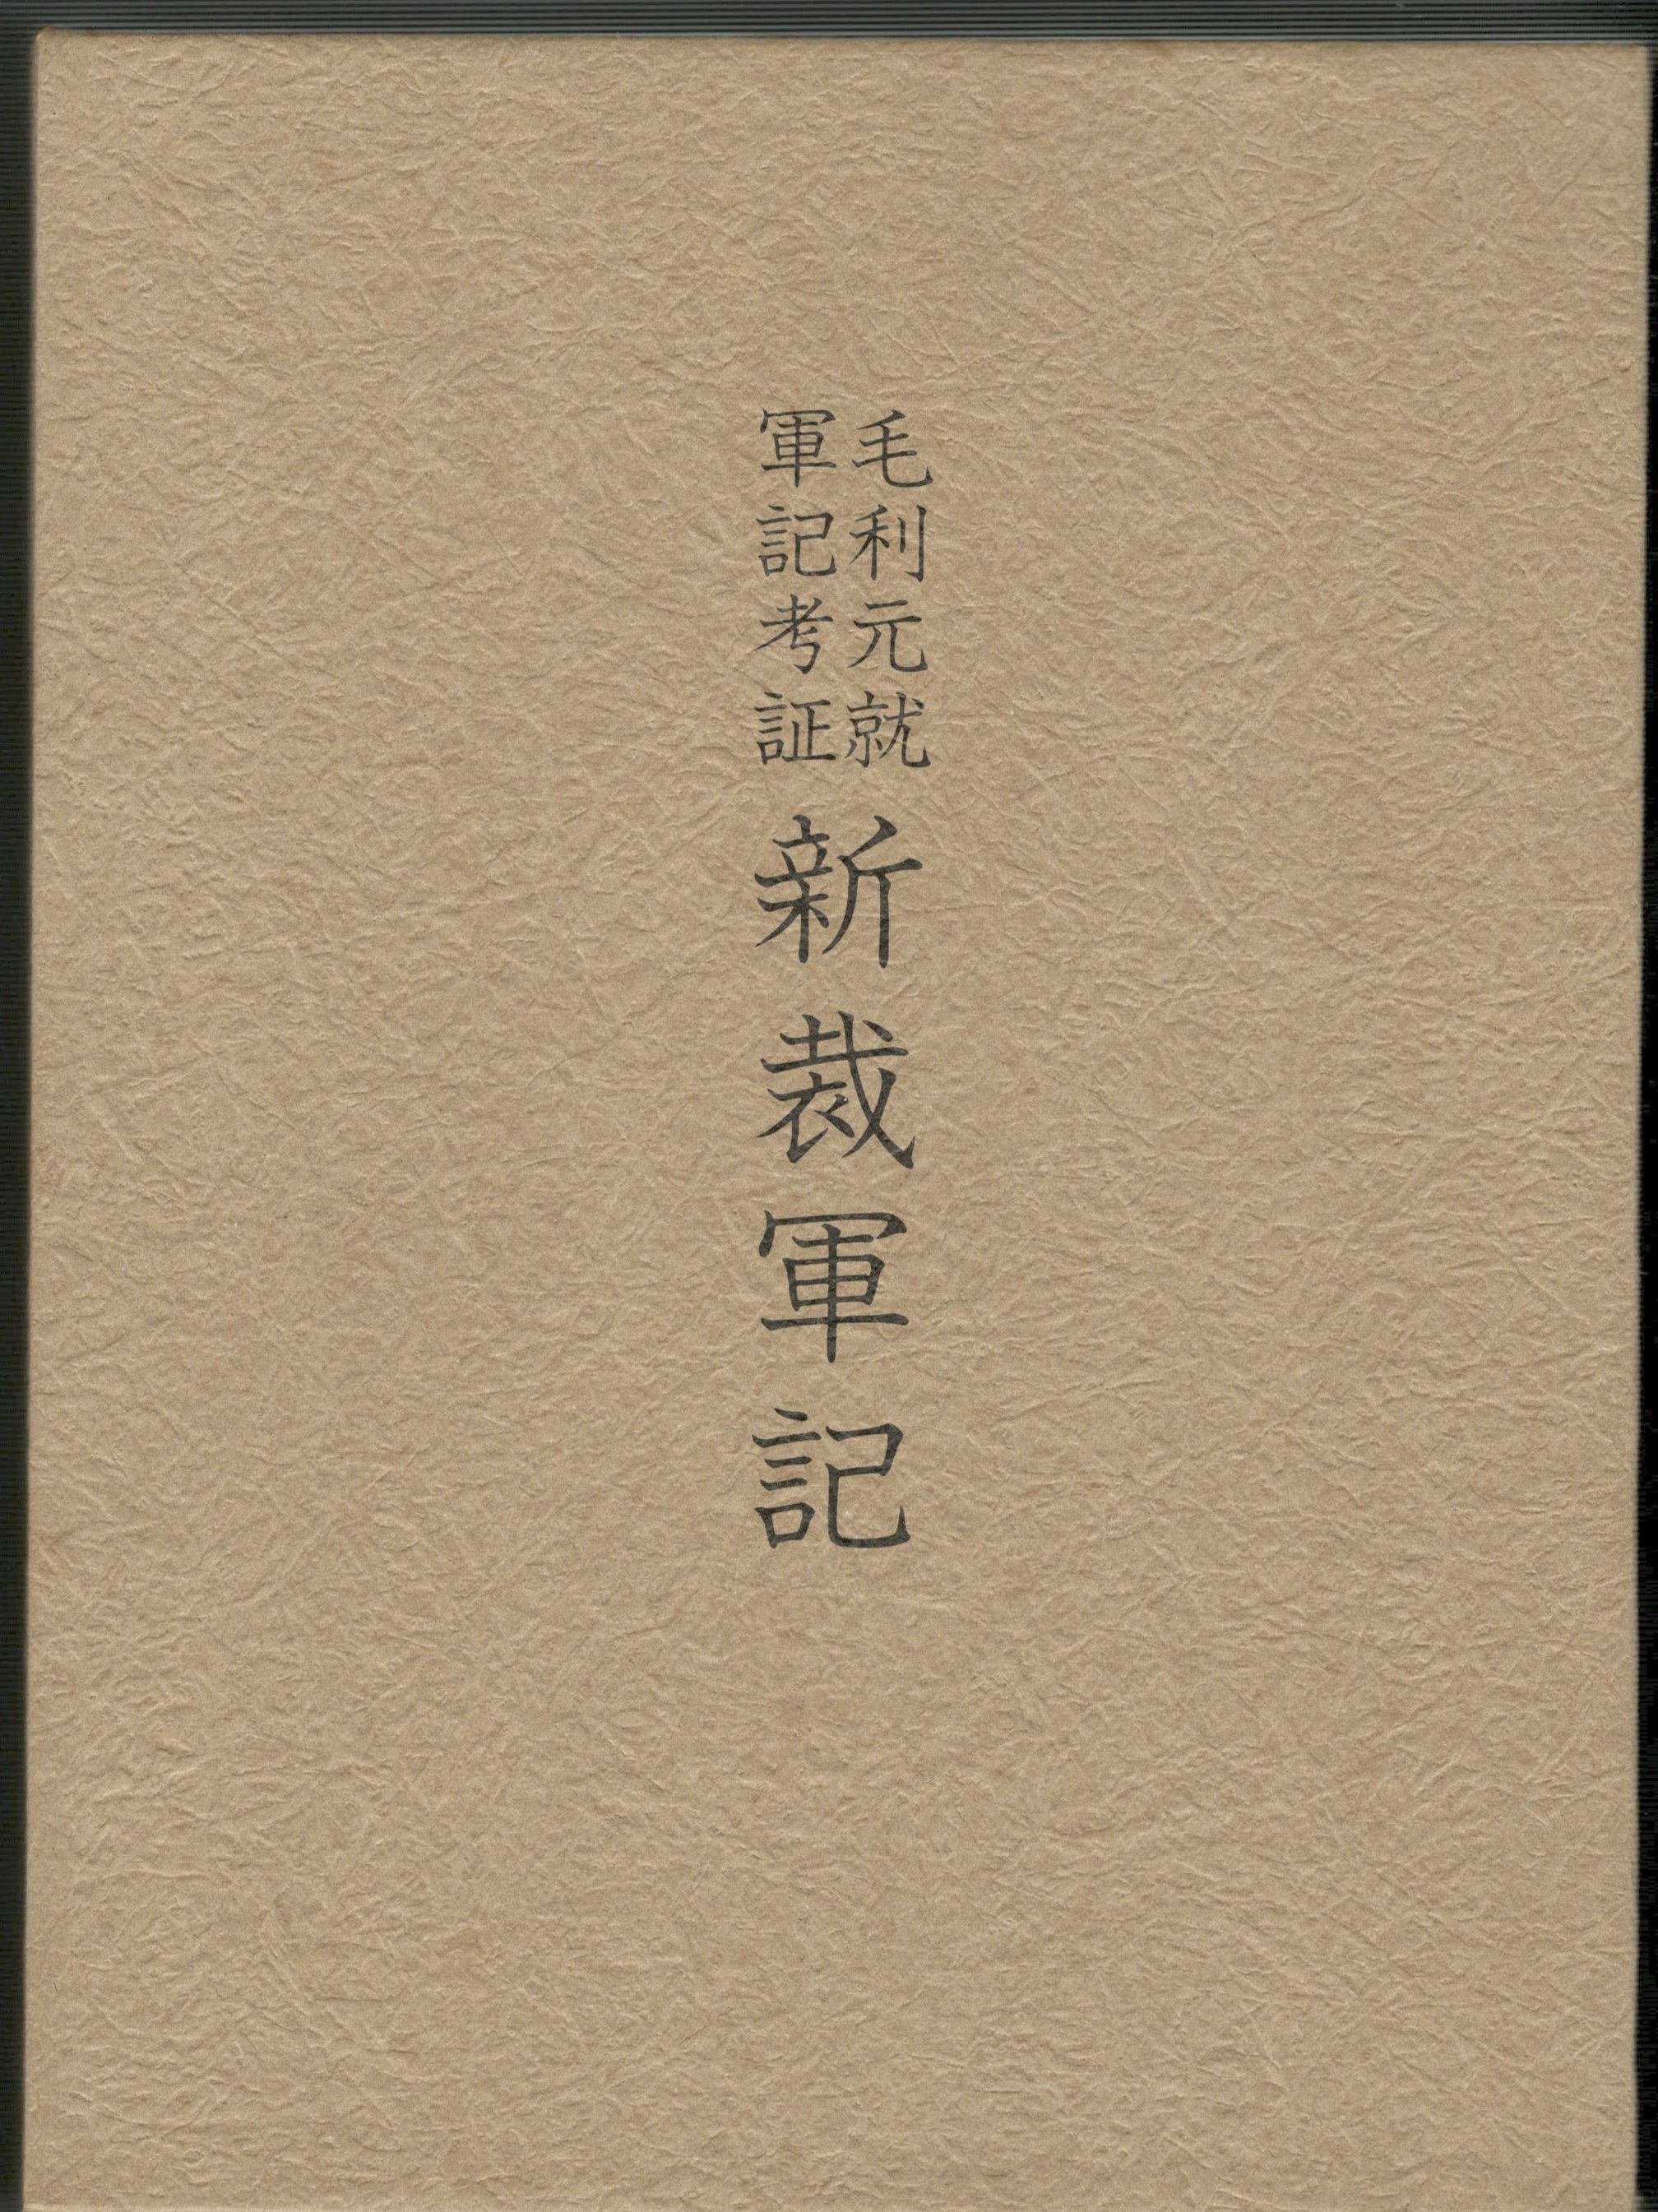 毛利元就
軍記考証
新裁軍記